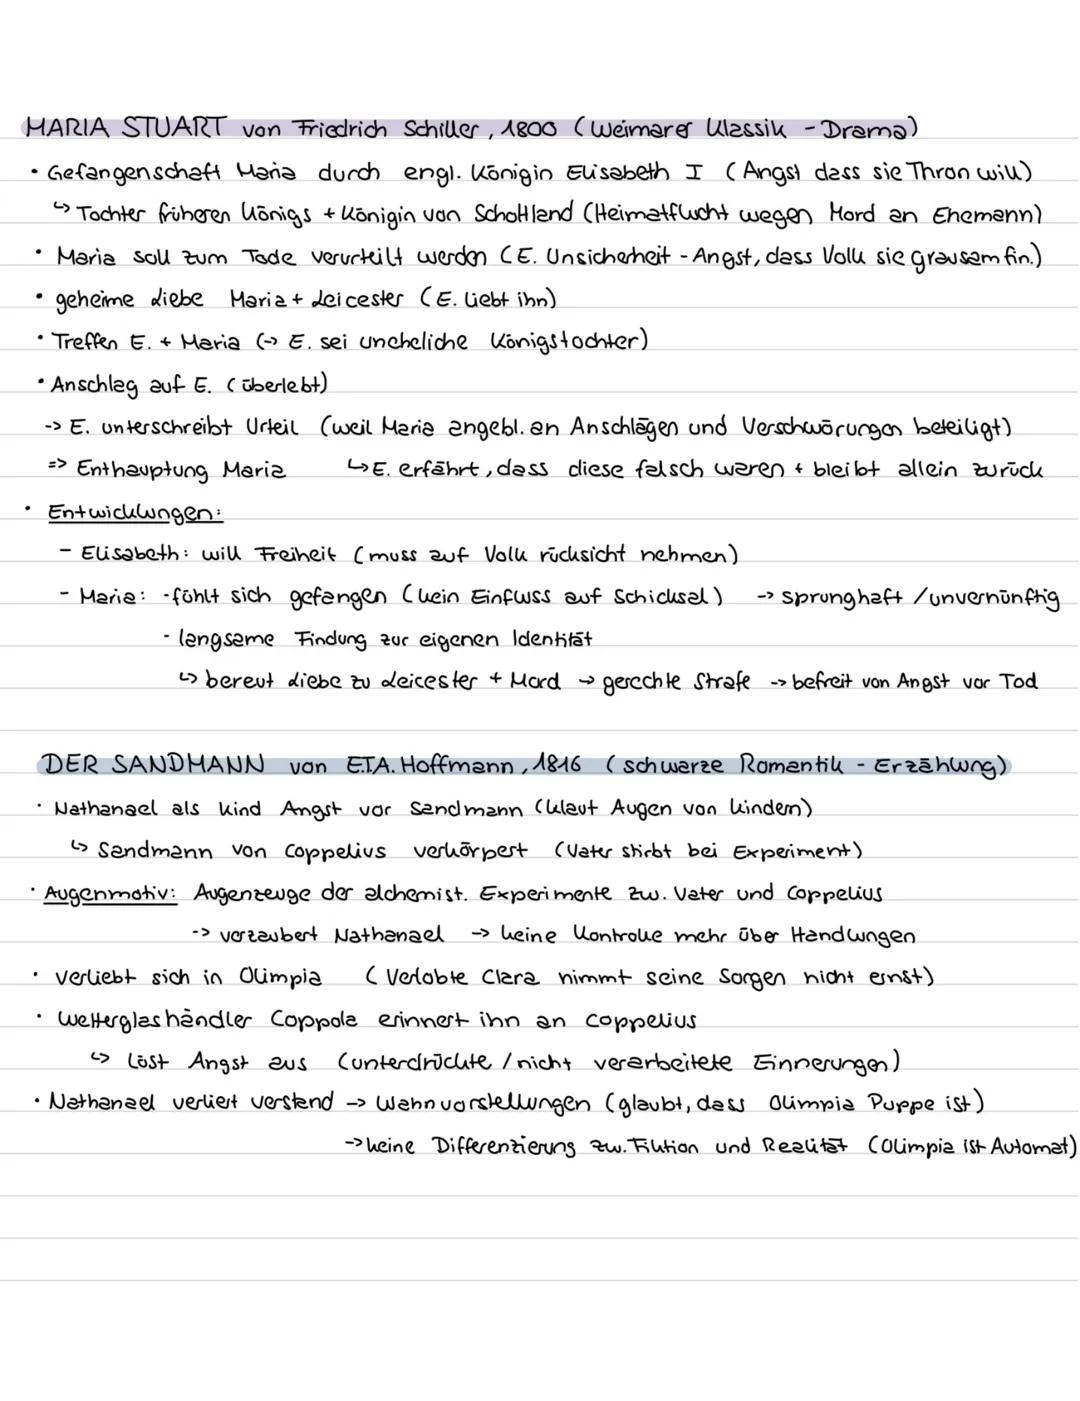 MARIA STUART von Friedrich Schiller, 1800 (Weimarer Klassik - Drama)
• Gefangenschaft Maria durch engl. Königin Elisabeth I (Angst dass sie Thron will)
↳ Tochter früheren Königs + Königin von Schottland (Heimatflucht wegen Mord an Ehemann)
• Maria soll zum Tode verurteilt werden (E. Unsicherheit - Angst, dass Volk sie grausam fin.)
• geheime Liebe Maria + Leicester (E. liebt ihn)
• Treffen E. + Maria (-> E. sei uneheliche Königstochter)
• Anschlag auf E. (überlebt)
-> E. unterschreibt Urteil (weil Maria angebl. an Anschlägen und Verschwörungen beteiligt)
=> Enthauptung Maria ↳ E. erfährt, dass diese falsch waren + bleibt allein zurück
• Entwicklungen:
- Elisabeth: will Freiheit (muss auf Volk rücksicht nehmen)
- Maria: - fühlt sich gefangen (kein Einfluss auf Schicksal) -> sprunghaft / unvernünftig
- langsame Findung zur eigenen Identität
↳ bereut Liebe zu Leicester + Mord -> gerechte Strafe -> befreit von Angst vor Tod
DER SANDMANN von E.T.A. Hoffmann, 1816 (schwarze Romantik - Erzählung)
• Nathanael als Kind Angst vor Sandmann (klaut Augen von Kindern)
↳ Sandmann von Coppelius verkörpert (Vater stirbt bei Experiment)
• Augenmotiv: Augenzeuge der alchemist. Experimente zw. Vater und Coppelius
-> verzaubert Nathanael -> keine Kontrolle mehr über Handlungen
• verliebt sich in Olimpia (Verlobte Clara nimmt seine Sorgen nicht ernst)
• Wetterglashändler Coppola erinnert ihn an Coppelius
↳ löst Angst aus (unterdrückte / nicht verarbeitete Einnerungen)
• Nathanael verliert verstand -> Wahnvorstellungen (glaubt, dass Olimpia Puppe ist)
-> keine Differenzierung zw. Fiktion und Realität (Olimpia ist Automat)